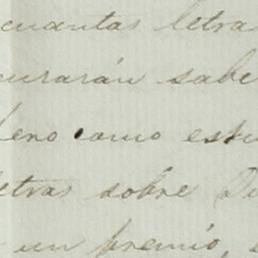 cuantas letra
curarán sabe
leno como estu
letras sobre
un premio,